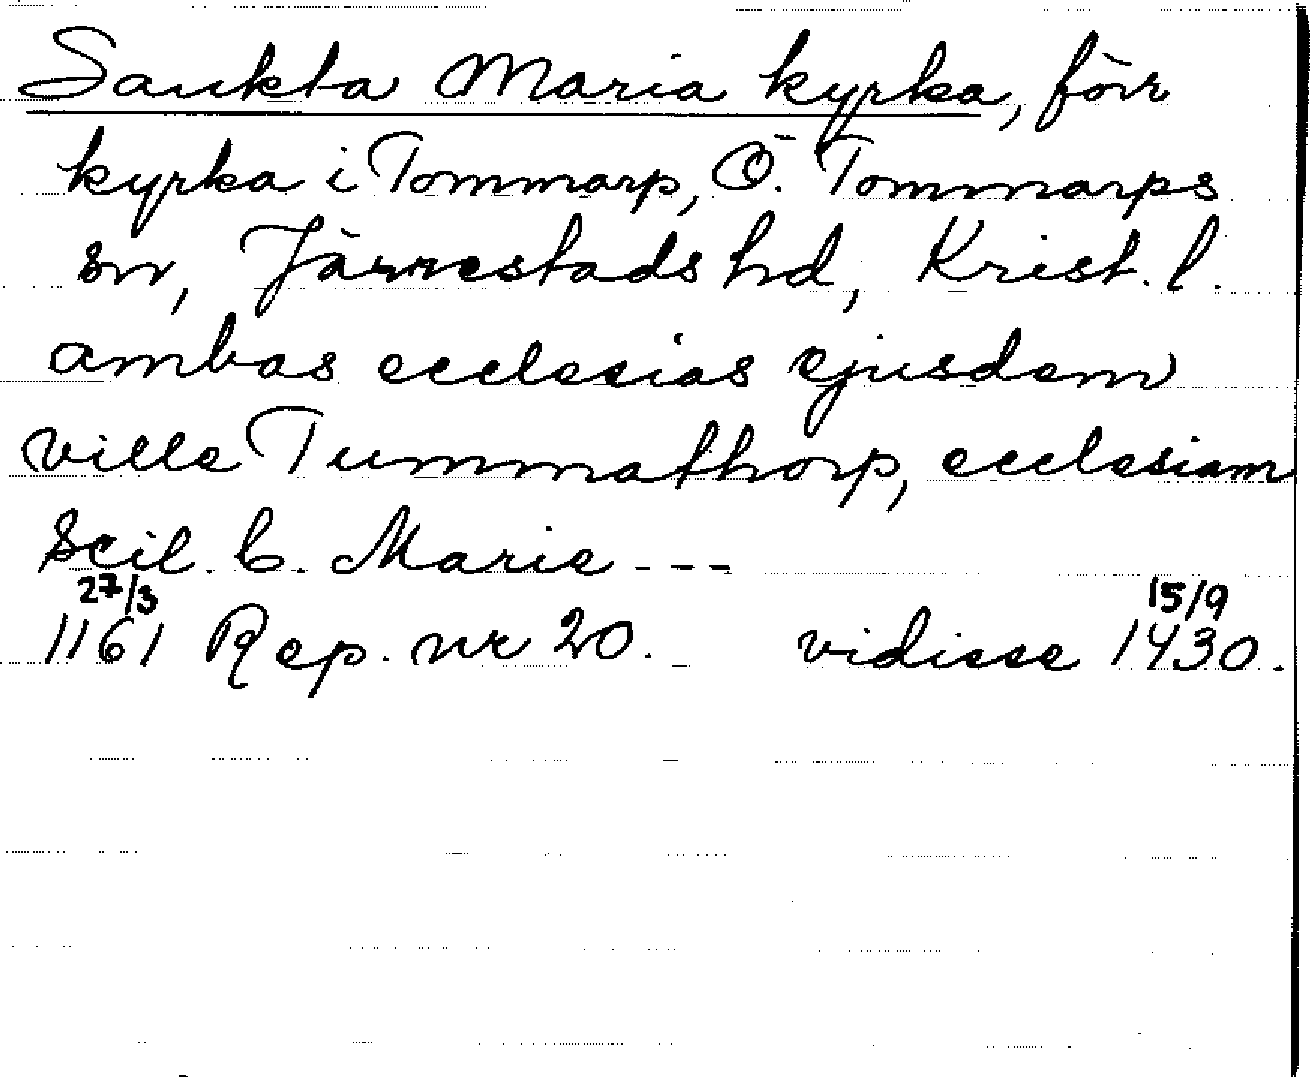 Sankta Maria kyrka, förr
kyrka i Tommarp, Ö. Tommarps
sn, Järrestads hd, Krist. l.
ambas ecclesias ejusdem
ville Tummathorp, ecclesiam
scil. b. Marie ---
27/3 15/9
1161 Rep. nr 20. vidisse 1430.